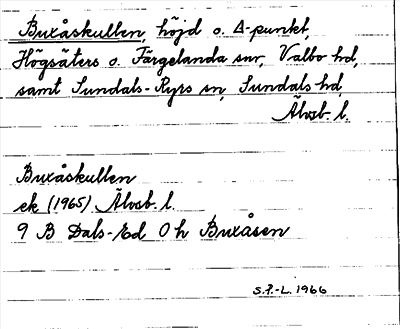 Buxåskullen, höjd o. Δ-punkt,
Högsäters o. Färgelanda snr, Valbo hd,
samt Sundals-Ryrs sn, Sundals hd,
Älvsb. l.
Buxåskullen
ek (1965) Älvsb. l.
9 B Dals-Ed 0 h Buxåsen
S.F.-L. 1966